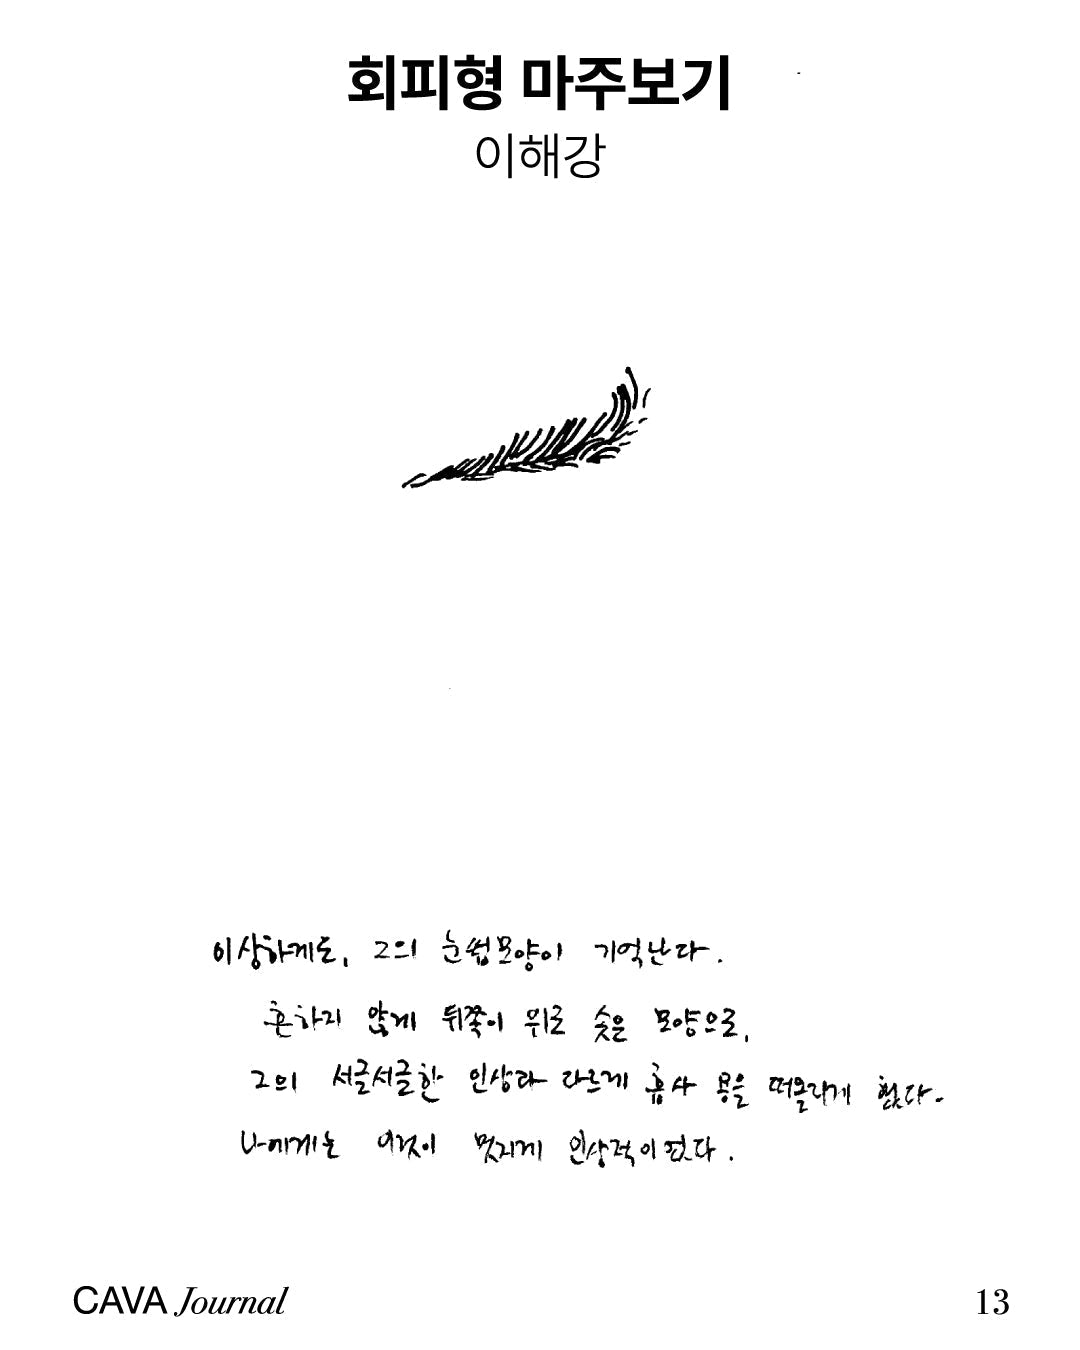 회피형 마주보기
이해강
이상하게도, 그의 눈썹모양이 기억난다.
흔하지 않게 뒤쪽이 위로 솟은 모양으로,
그의 서글서글한 인상과 다르게 흡사 용을 떠올리게 했다.
나에게는 이것이 멋지게 인상적이었다.
CAVA Journal
13